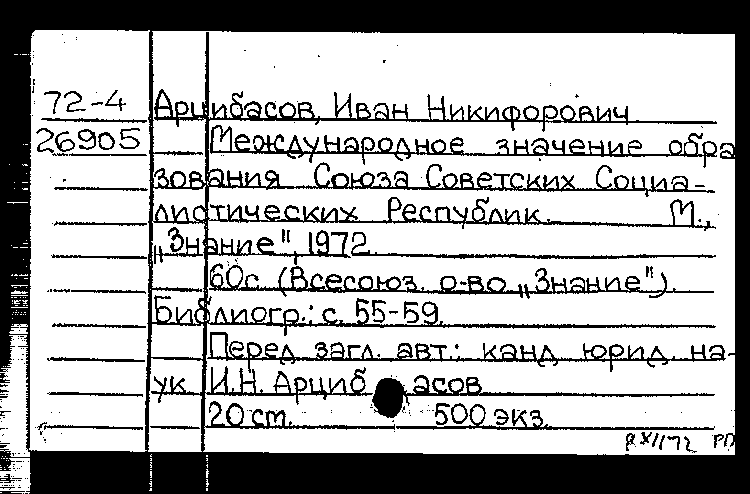 72-4 Арцибасов, Иван Никифорович
26905 Международное значение обра
зования Союза Советских Социа-
листических Республик. М.,
„Знание", 1972.
60с. (Всесоюз. о-во „Знание").
Библиогр.: с. 55-59.
Перед загл. авт.: канд. юрид. на-
ук И.Н. Арцибасов
20 ст. 500 экз.